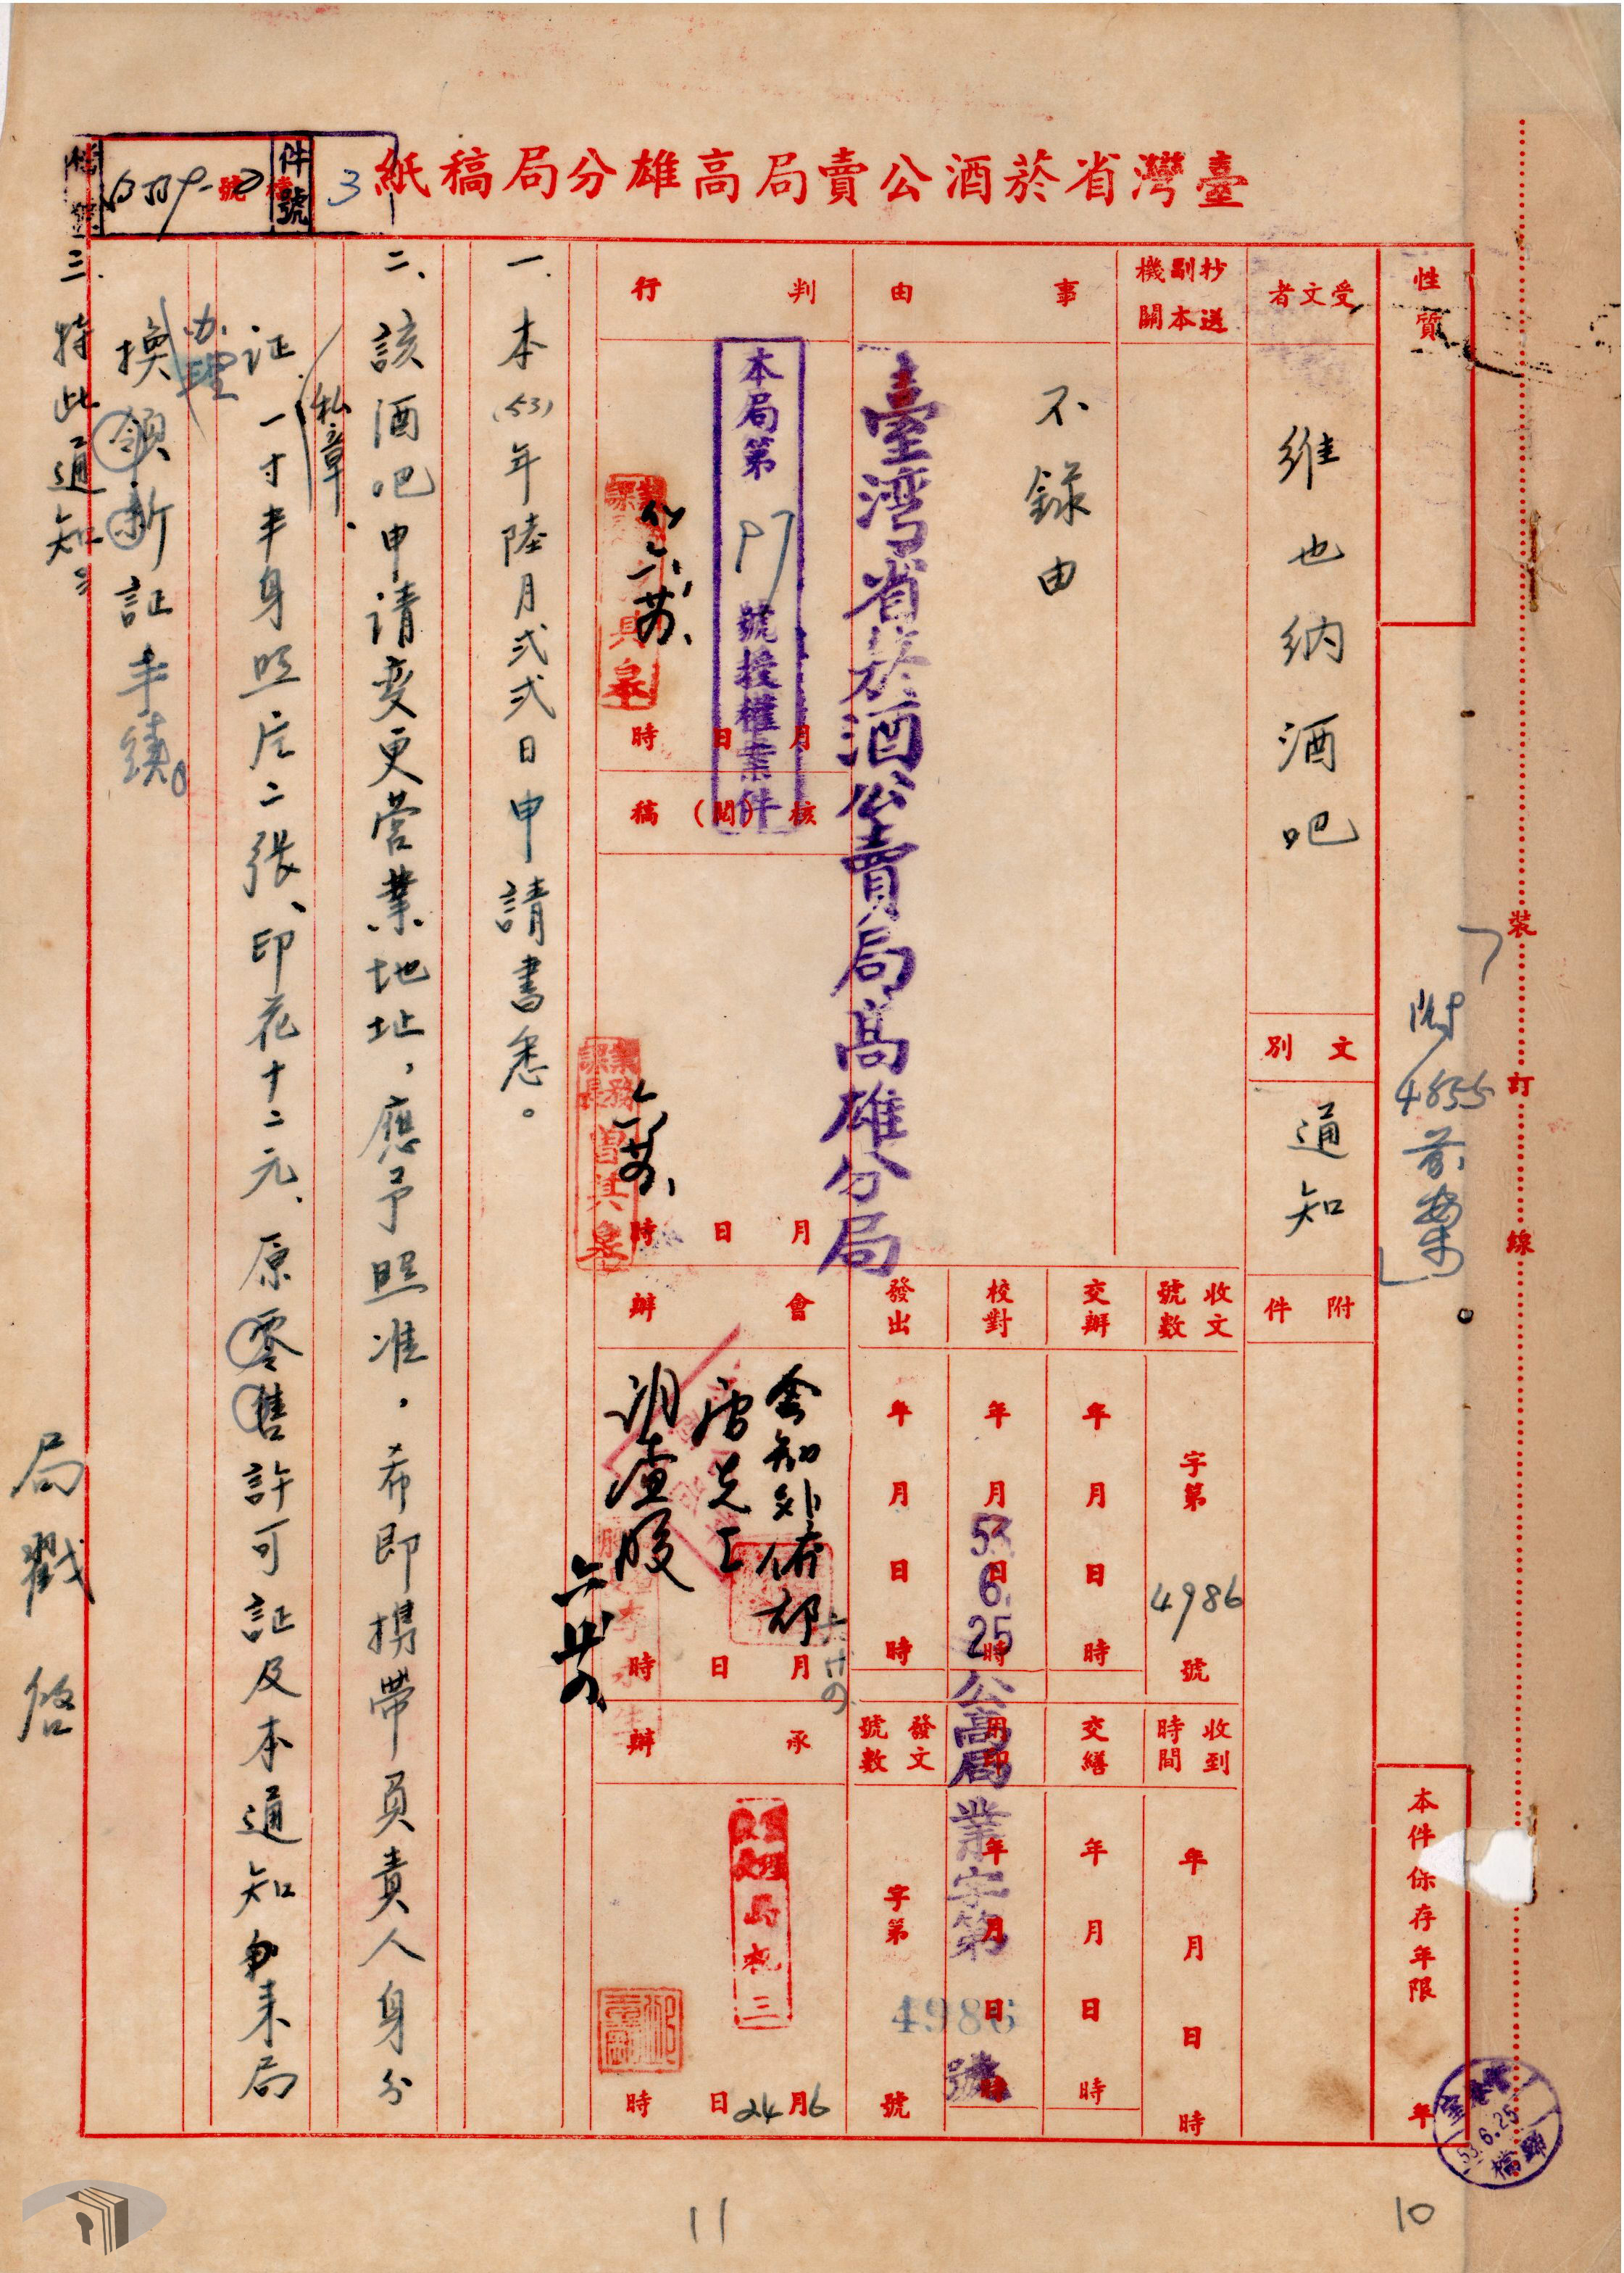 臺灣省菸酒公賣局高雄分局稿紙
檔號
件號
3
性質
受文者
維也納酒吧
文別
通知
附件
抄送副本機關
事由
不錄由
臺湾省菸酒公賣局高雄分局
判行
本局第97號授權案件
月日時
核(閱)稿
月日時
業務課長曾其皋
會辦
會知外僑部
調查股
月日時
六廿四
承辦
6月24日時
收文號數
字第4986號
交辦
年月日時
校對
年月日時
發出
年月日時
收到時間
年月日時
交繕
年月日時
用印
年月日時
發文號數
字第號
53.6.25公高局業字第4986號
附4855前案
裝訂線
本件保存年限
年
53.6.25
歸檔
一.本(53)年陸月弍弍日申請書悉。
二、該酒吧申请变更营業地址,應予照准,希即携帶負責人身分
证、私章、一寸半身照片二張、印花十二元、原零售許可証及本通知來局
办理
換領新証手續。
三.特此通知。
局戳啓
11
10